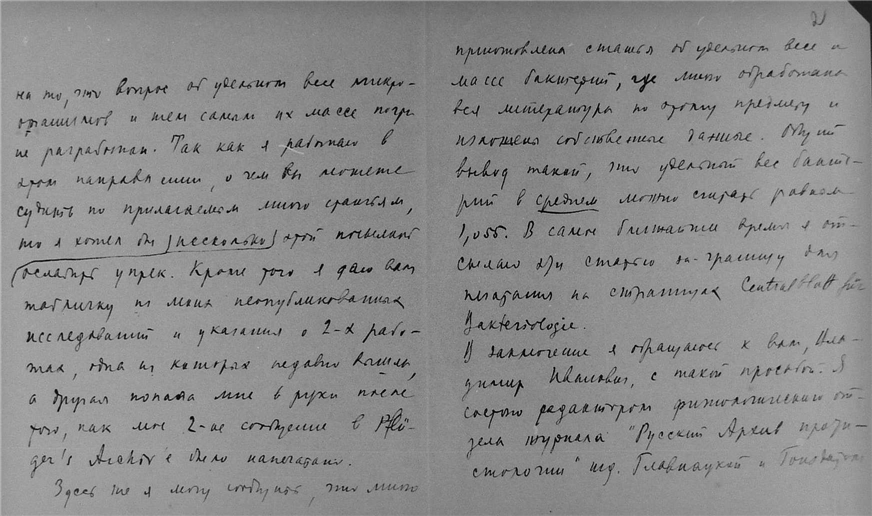 на то, что вопрос об удельном весе микро-
организмов и тем самым их массе почти
не разработан. Так как я работаю в
этом направлении, о чем Вы можете
судить по прилагаемым мною статьям,
то я хотел бы несколько этой посылкой
ослабить упрек. Кроме того я даю вам
табличку из моих неопубликованных
исследований и указания о 2-х рабо-
тах, одна из которых недавно вышла,
а другая попала мне в руки после
того, как мое 2-ое сообщение в Pflü-
ger's Archiv'е было напечатано.
Здесь же я могу сообщить, что мною
2
приготовлена статья об удельном весе и
массе бактерий, где мною обработана
вся литература по этому предмету и
изложены собственные данные. Общий
вывод такой, что удельный вес бакте-
рий в среднем можно считать равным
1,055. В самое ближайшее время я от-
сылаю эту статью за-границу для
печатания на страницах Centralblatt für
Bakteriologie.
В заключение я обращаюсь к вам, Вла-
димир Иванович, с такой просьбой. Я
состою редактором физиологического от-
дела журнала "Русский Архив проти-
стологии" изд. Главнаукой и